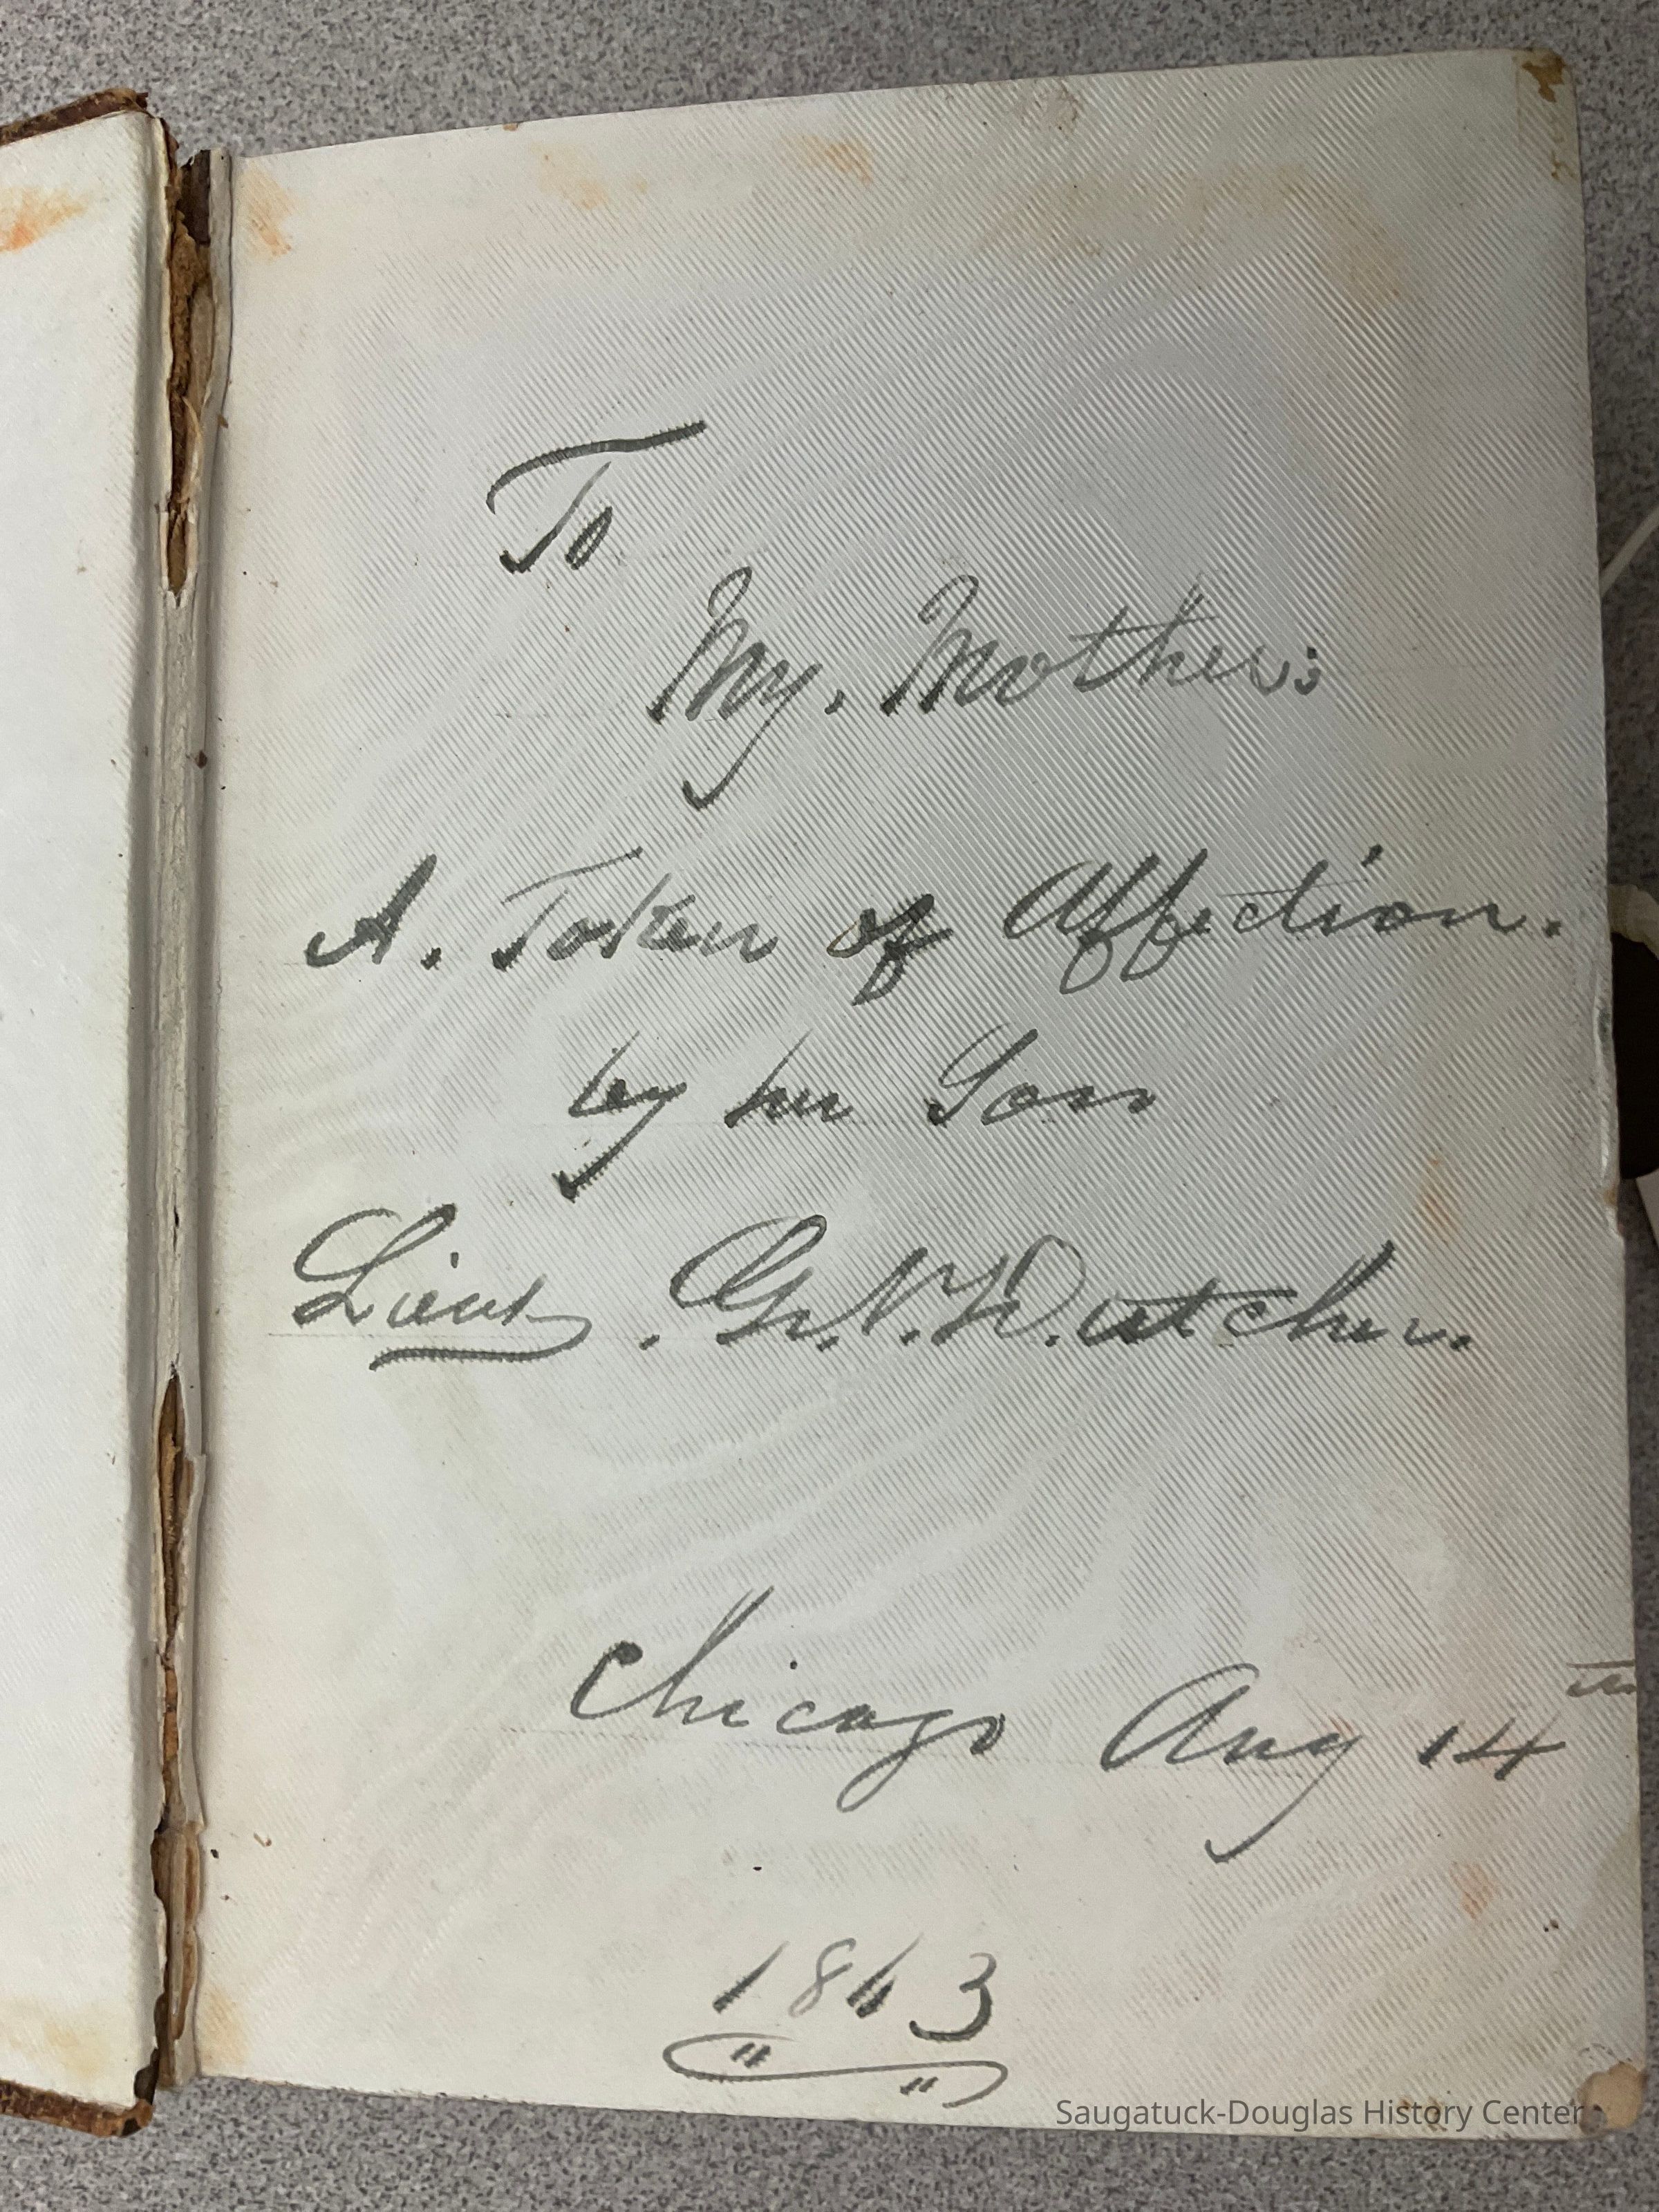 To
My. Mother:
A. Token of Affection.
by her Son
Lieut. G.N. Dutcher.
Chicago Aug 14th
1863
Saugatuck-Douglas History Center